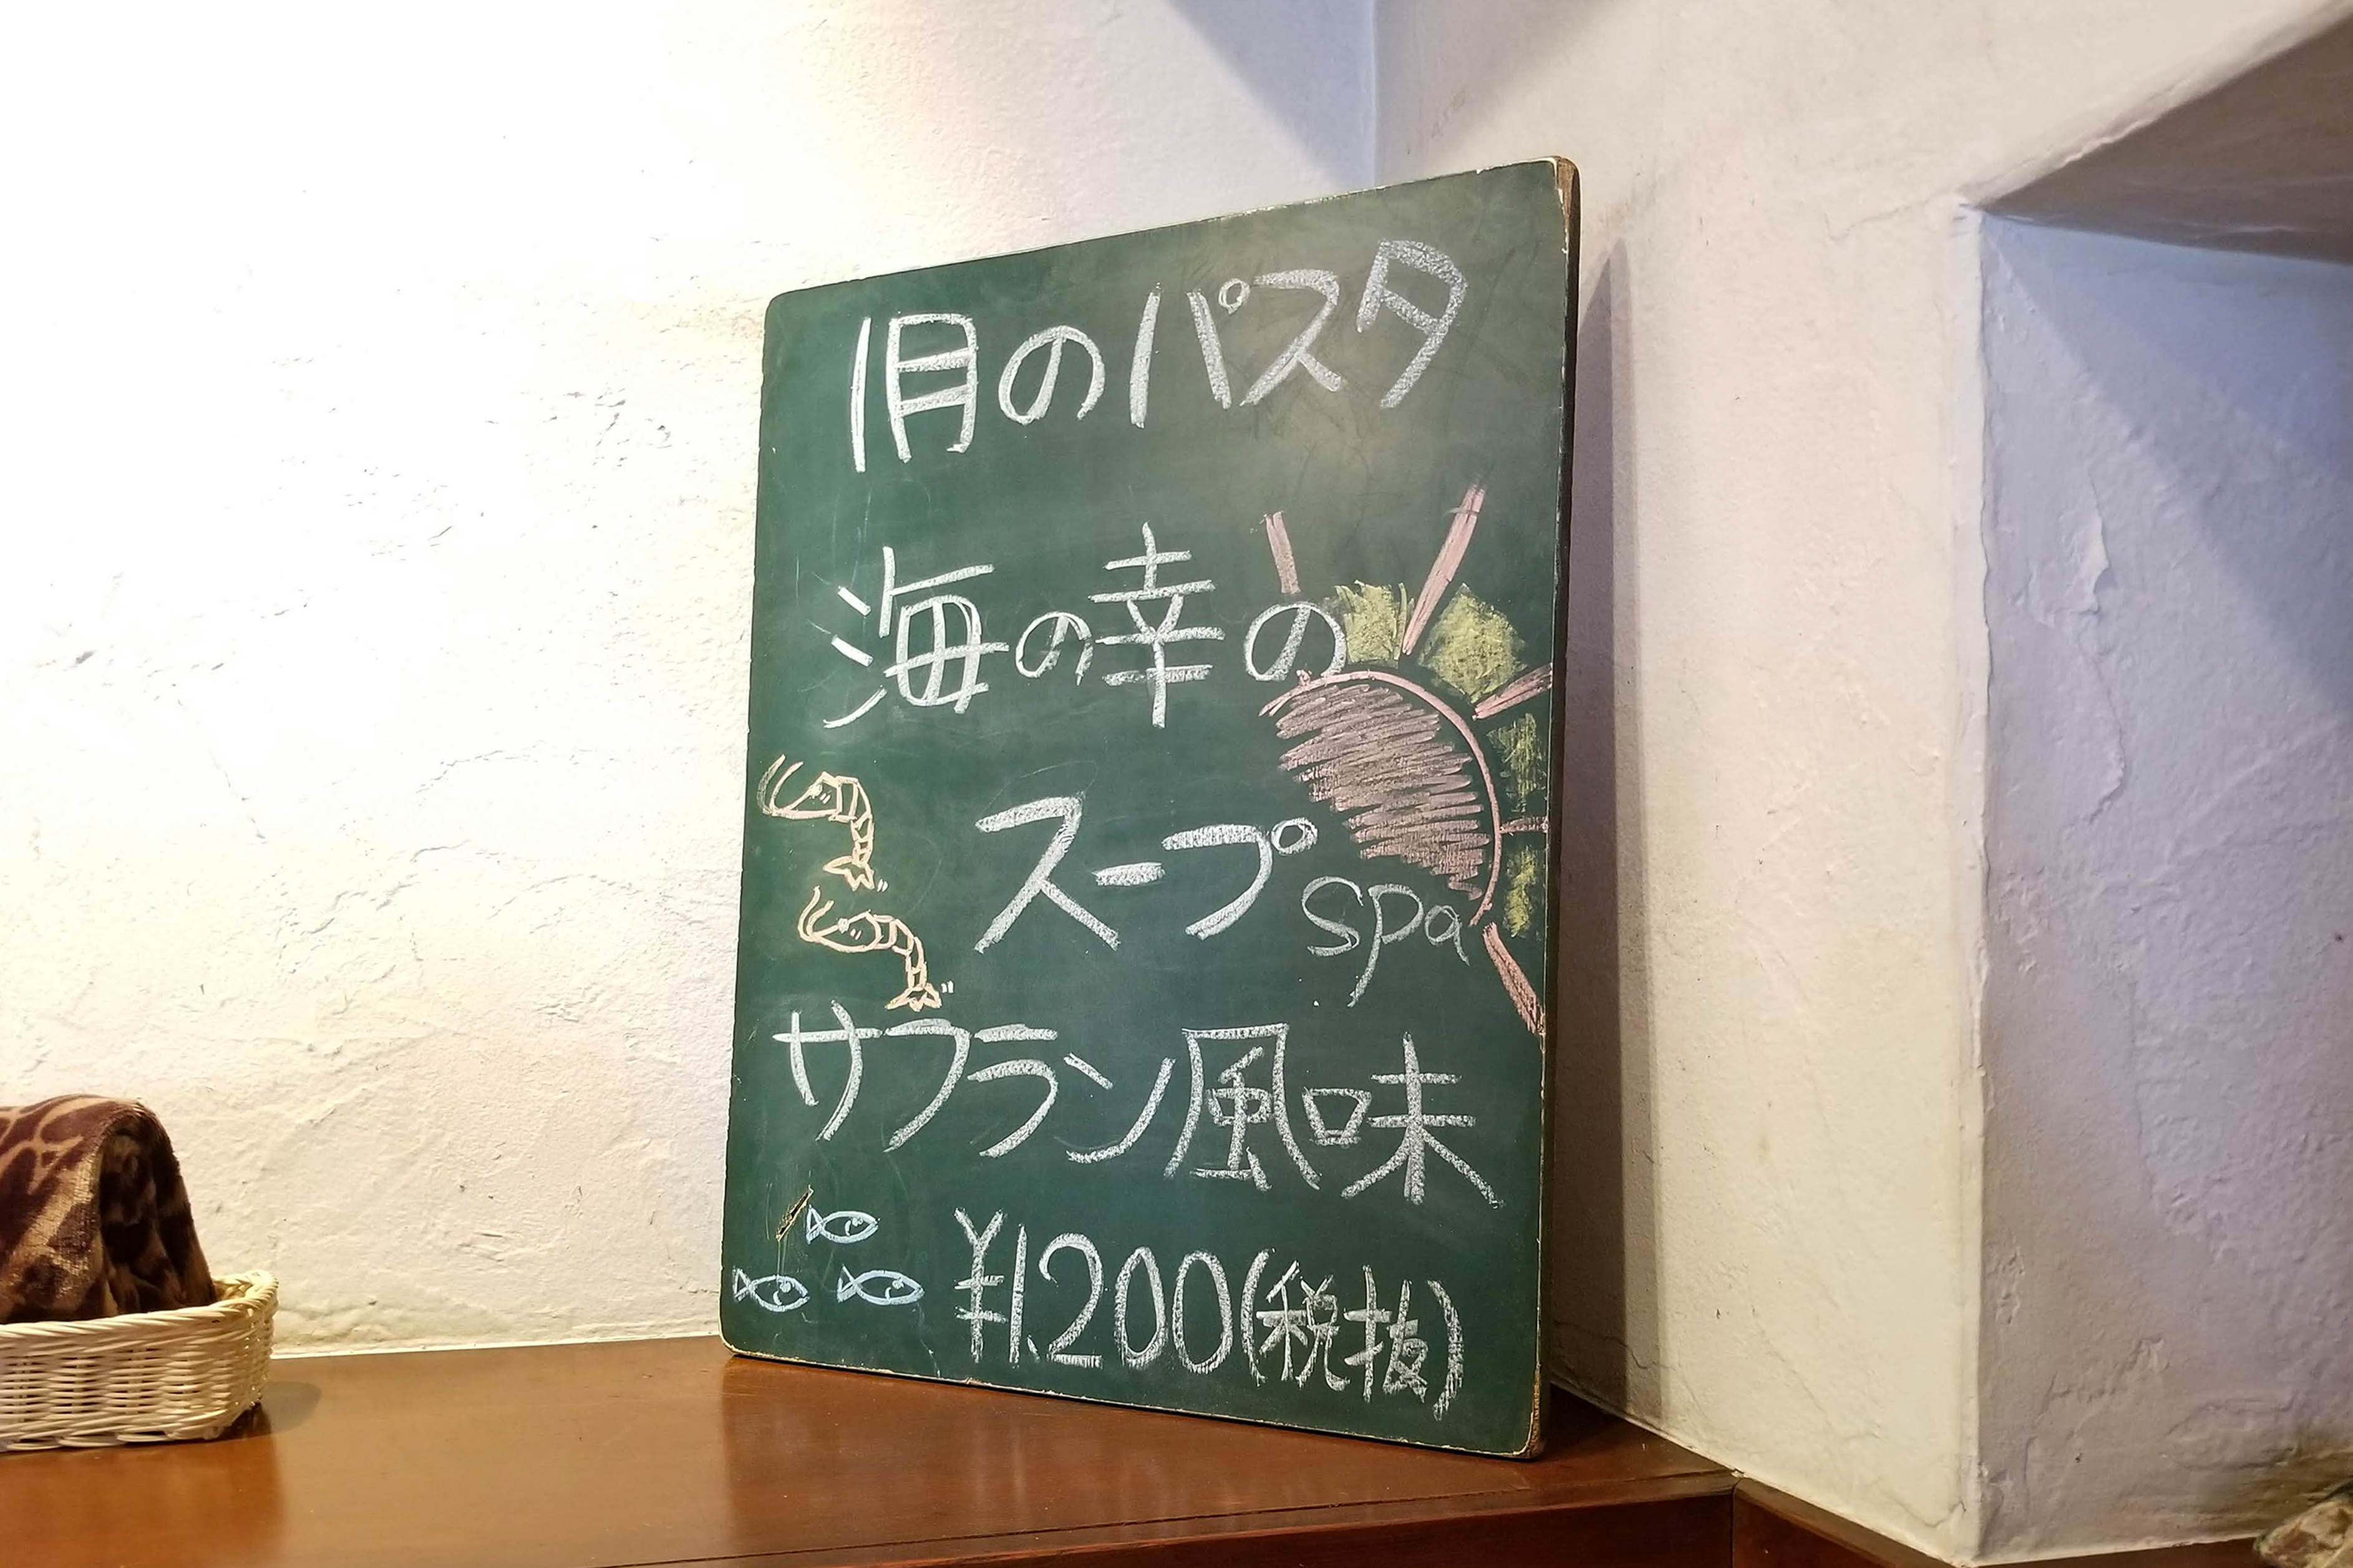 1月のパスタ
海の幸の
スープspa
サフラン風味
¥1,200(税抜)